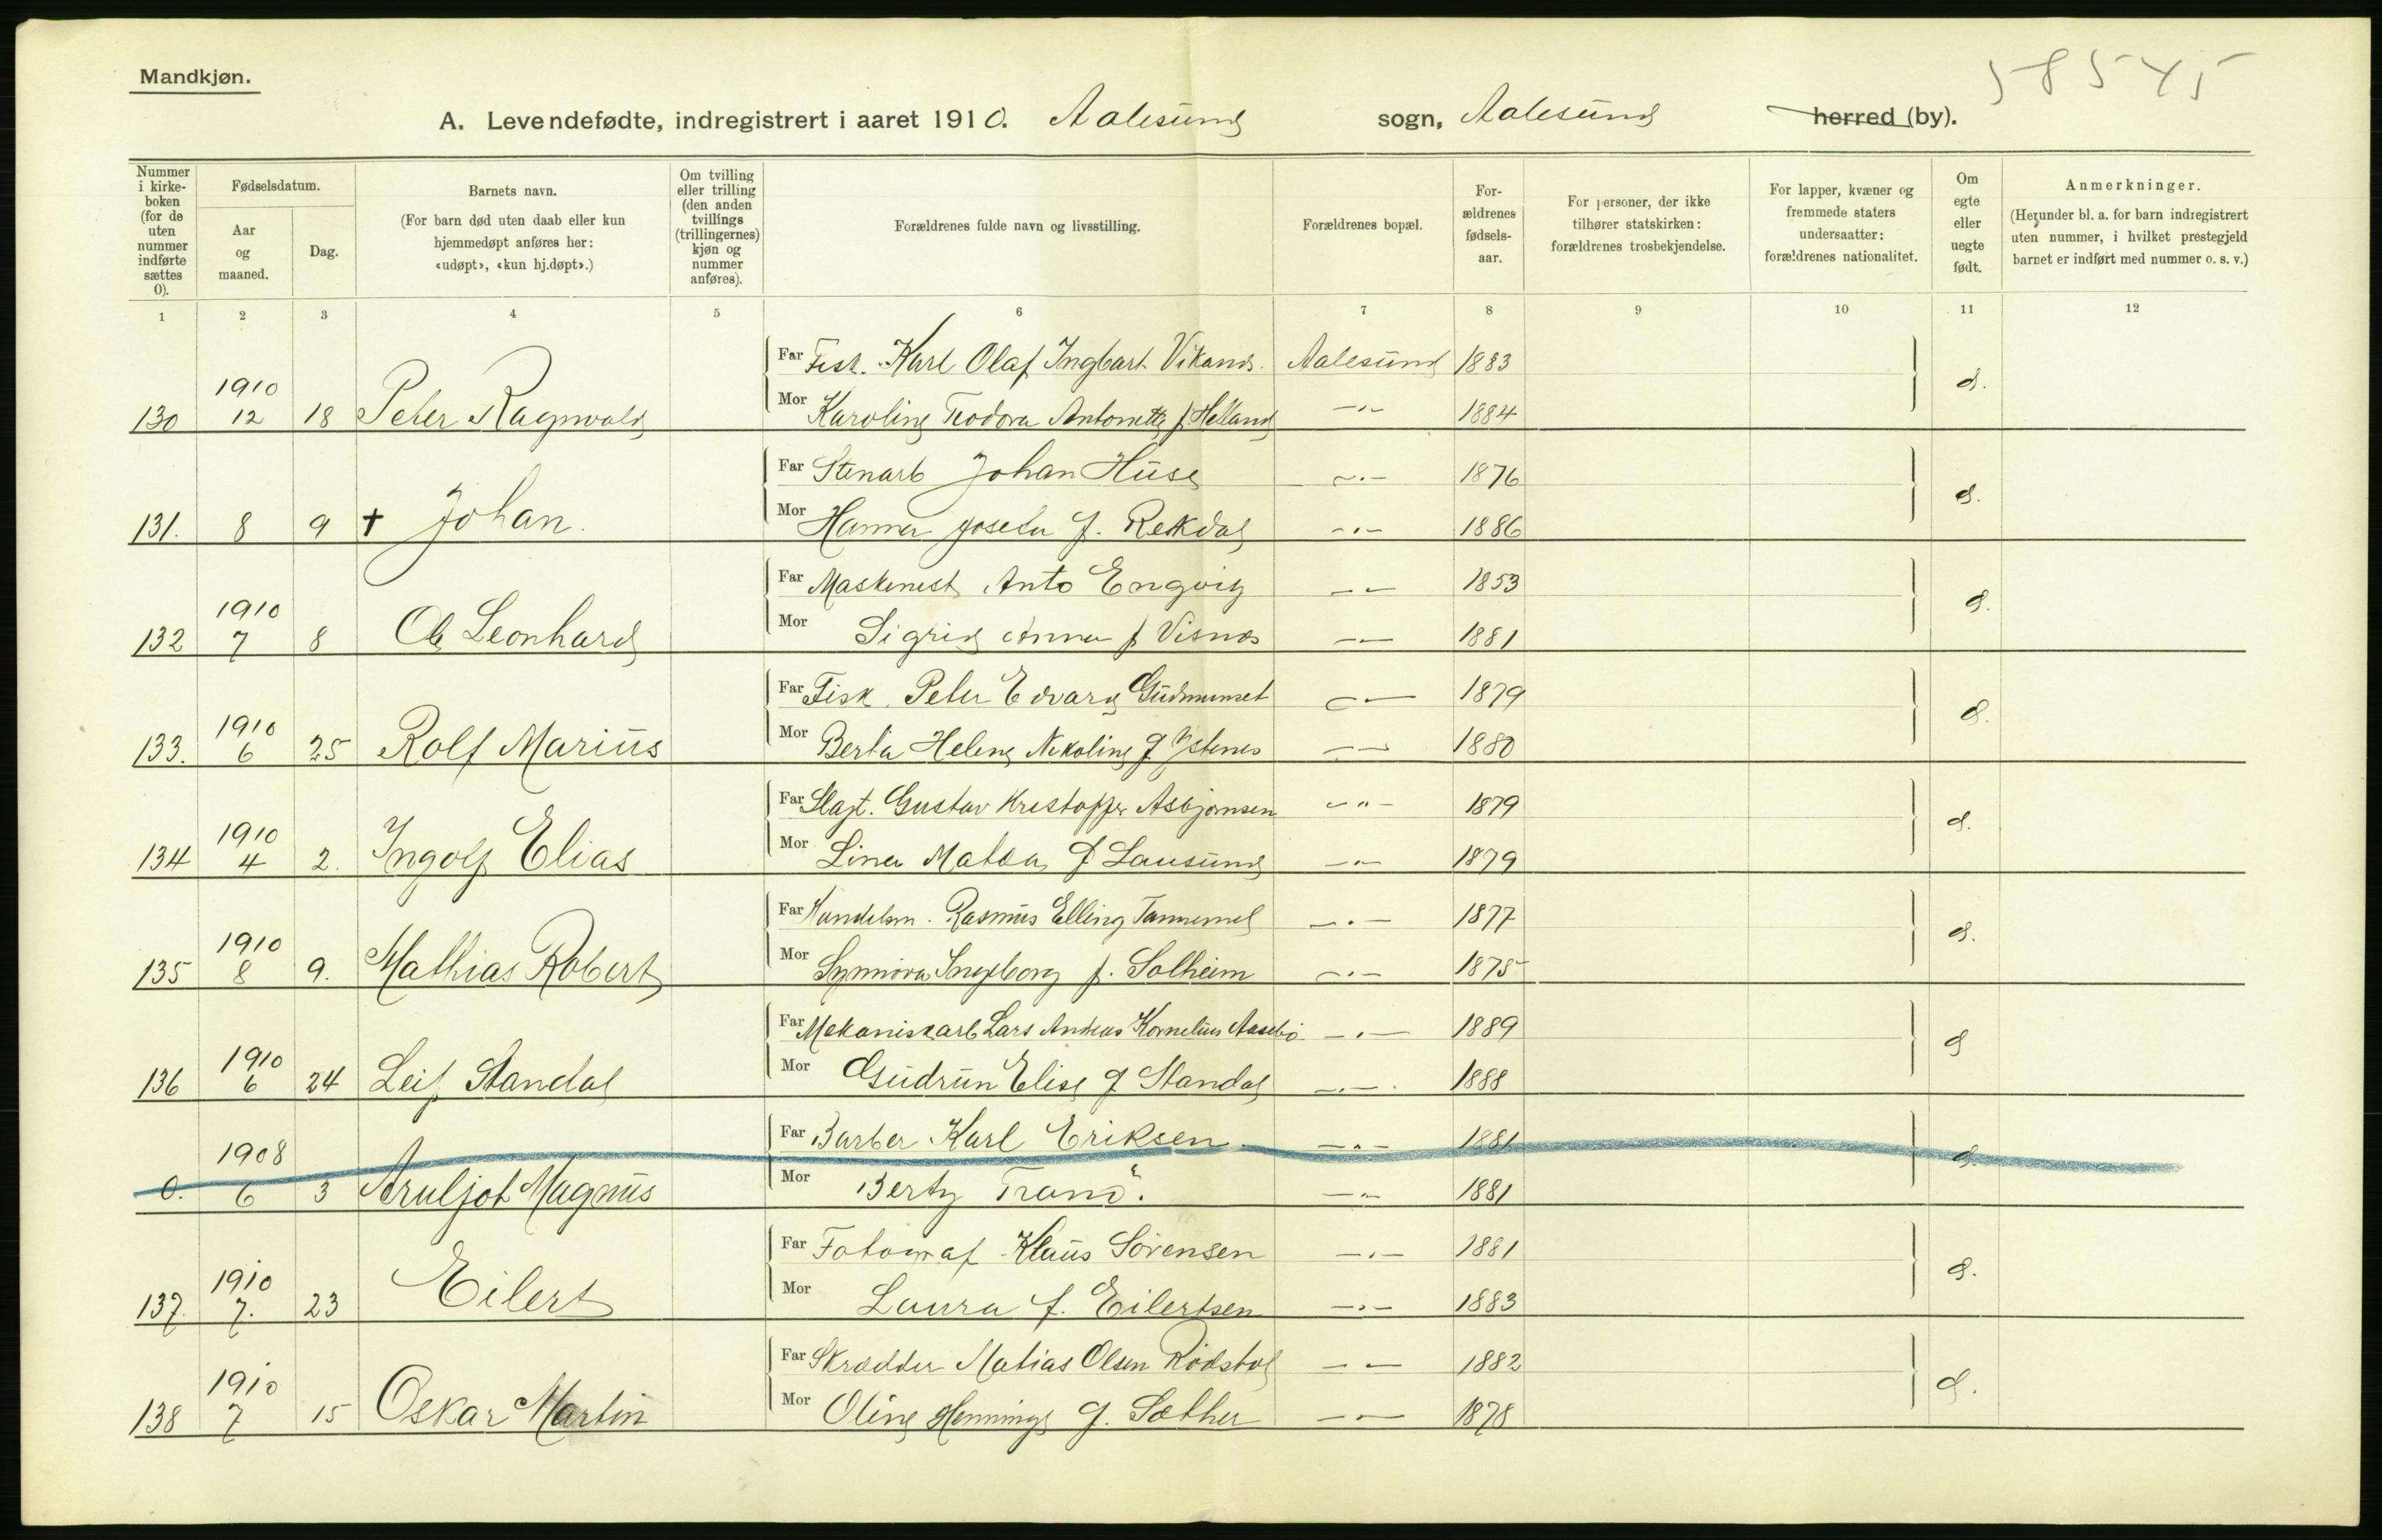 58545
Mandkjøn.
A. Levendefødte, indregistrert i aaret 1910. Aalesund sogn, Aalesund herred (by).
Nummer i kirke-boken (for de uten nummer indførte sættes 0).
Fødselsdatum.
Aar og maaned.
Dag.
Barnets navn.
(For barn død uten daab eller kun hjemmedøpt anføres her: «udøpt», «kun hj.døpt».)
Om tvilling eller trilling (den anden tvillings (trillingernes) kjøn og nummer anføres).
Forældrenes fulde navn og livsstilling.
Forældrenes bopæl.
For-ældrenes fødsels-aar.
For personer, der ikke tilhører statskirken: forældrenes trosbekjendelse.
For lapper, kvæner og fremmede staters undersaatter: forældrenes nationalitet.
Om egte eller uegte født.
Anmerkninger.
(Herunder bl. a. for barn indregistrert uten nummer, i hvilket prestegjeld barnet er indført med nummer o. s. v.)
1 2 3 4 5 6 7 8 9 10 11 12
Far Fisk. Karl Olaf Ingbart Vikand. Aalesund 1883
130 1910 12 18 Peter Ragnvald e.
Mor Karoline Teodora Antonette f. Helland -"- 1884
Far Stenarb Johan Huse -"- 1876
131. 8 9 + Johan. e.
Mor Hanna Josefa f. Rekdal -"- 1886
Far Maskinest Anto Engvig -"- 1853
132 1910 7 8 Ole Leonhard e.
Mor Sigrid Anna f Visnes -"- 1881
Far Fisk. Peter Edvard Gudmunset -"- 1879
133. 1910 6 25 Rolf Marius e.
Mor Berta Helene Nikoline f Ystenes -"- 1880
Far Slagt. Gustav Kristoffer Asbjørnsen -"- 1879
134 1910 4 2. Ingolf Elias e.
Mor Lina Matea f Lausund -"- 1879
Far Handelsm. Rasmus Elling -"- 1877
135 1910 8 9. Mathias Robert e.
Mor Synnöva Ingeborg f. Solheim -"- 1875
Far Mekaniskarb Lars Andreas Kornelius Aasebö -"- 1889
136 1910 6 24 Leif Standal e
Mor Gudrun Elise f Standal -"- 1888
Far Barber Karl Eriksen -"- 1881
0. 1908 6 3 Aruljot Magnus e.
Mor Berty -"- 1881
Far Fotograf Klaus Sörensen -"- 1881
137. 1910 7. 23 Eilert e.
Mor Laura f. Eilertsen -"- 1883
Far Skrædder Matias Olsen Rödstöl -"- 1882
138 1910 7 15 Oskar Martin e.
Mor Oline Henninge f. Sæther -"- 1878